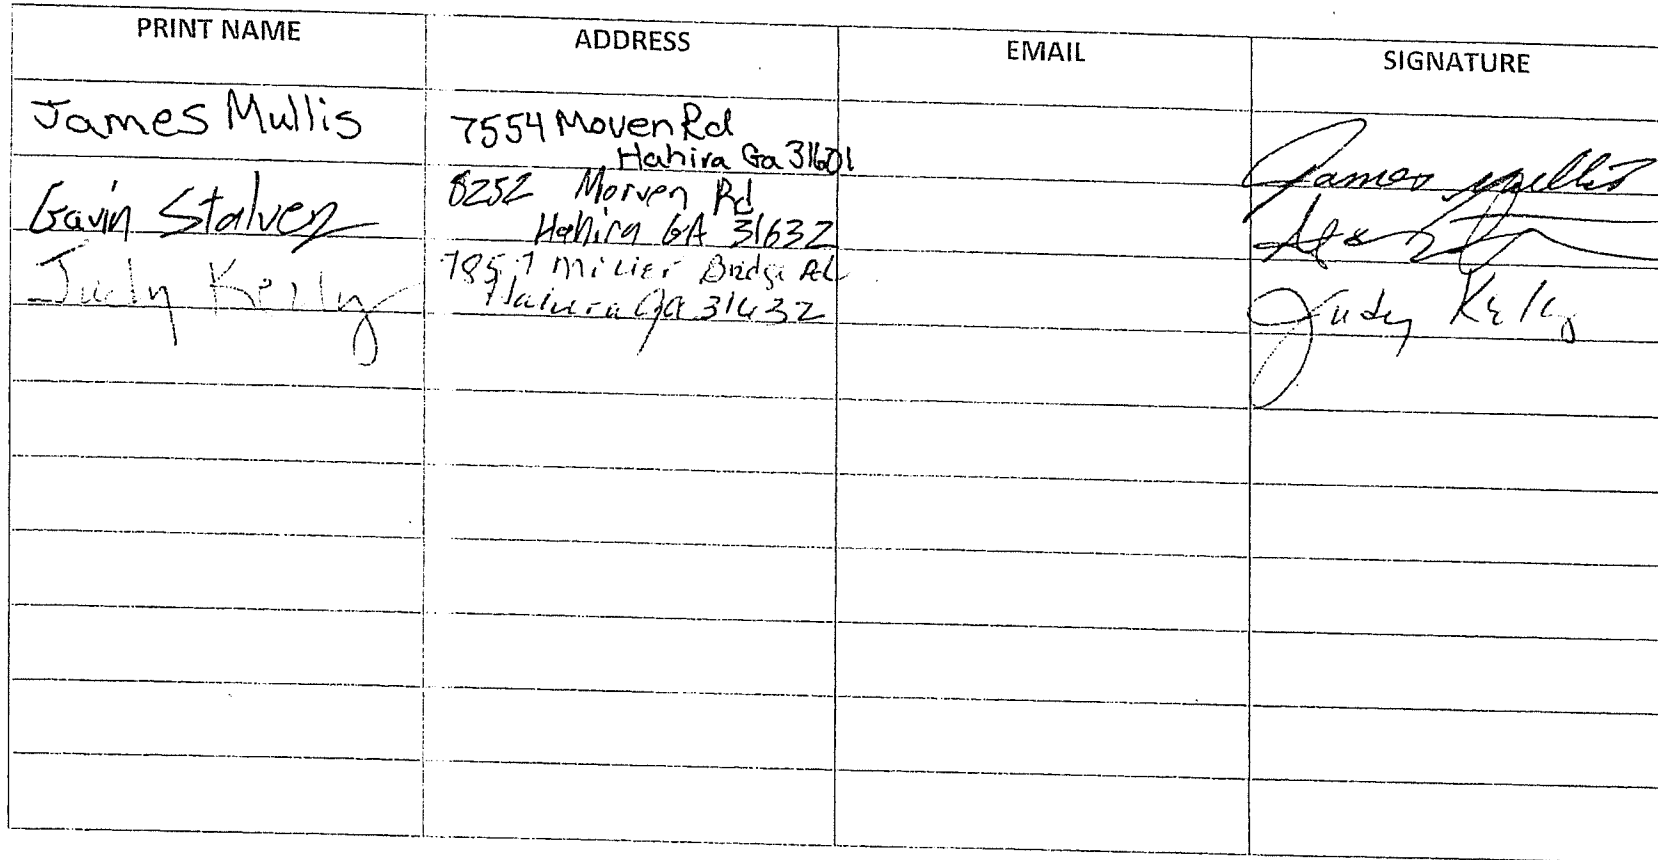 PRINT NAME ADDRESS EMAIL SIGNATURE
James Mullis 7554 Moven Rd
Hahira Ga 31601 James Mullis
Gavin Stalvey 8252 Morven Rd
Hahira GA 31632
Judy Kelly Bridge Rd
Hahira Ga 31632 Judy Kelly